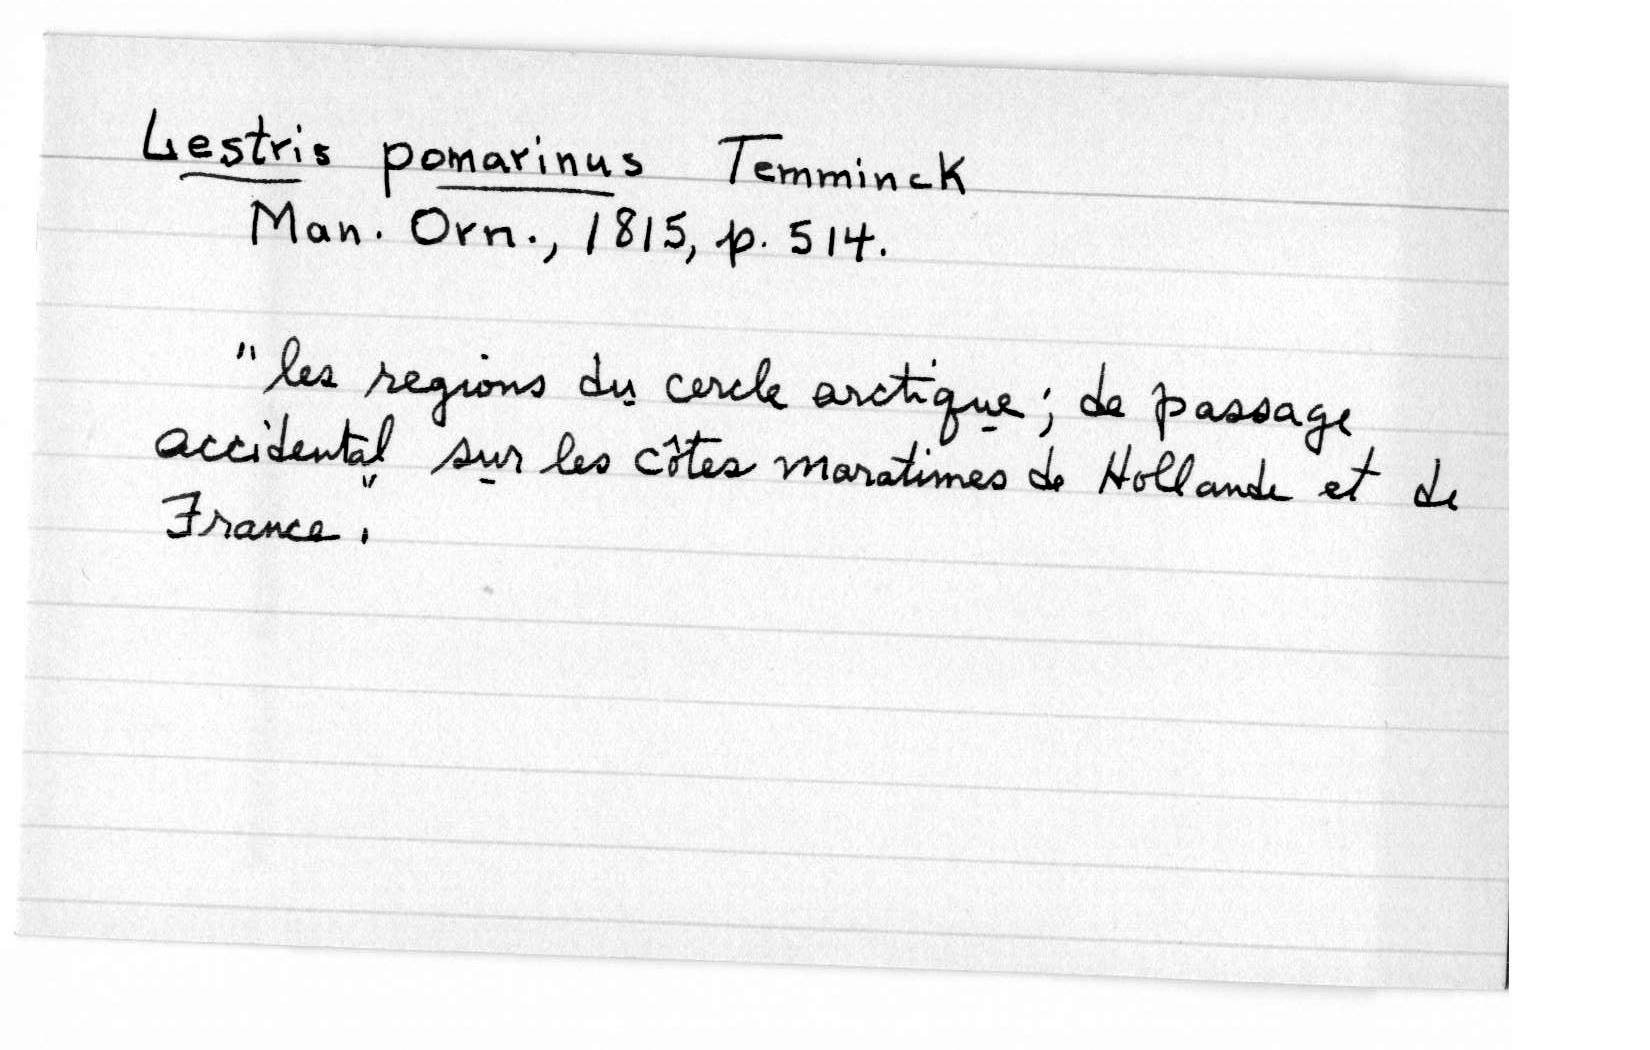 Lestris pomarinus Temminck
Man. Orn., 1815, p. 514.
"les regions du cercle arctique; de passage
accidental sur les côtes maratimes de Hollande et de
France."